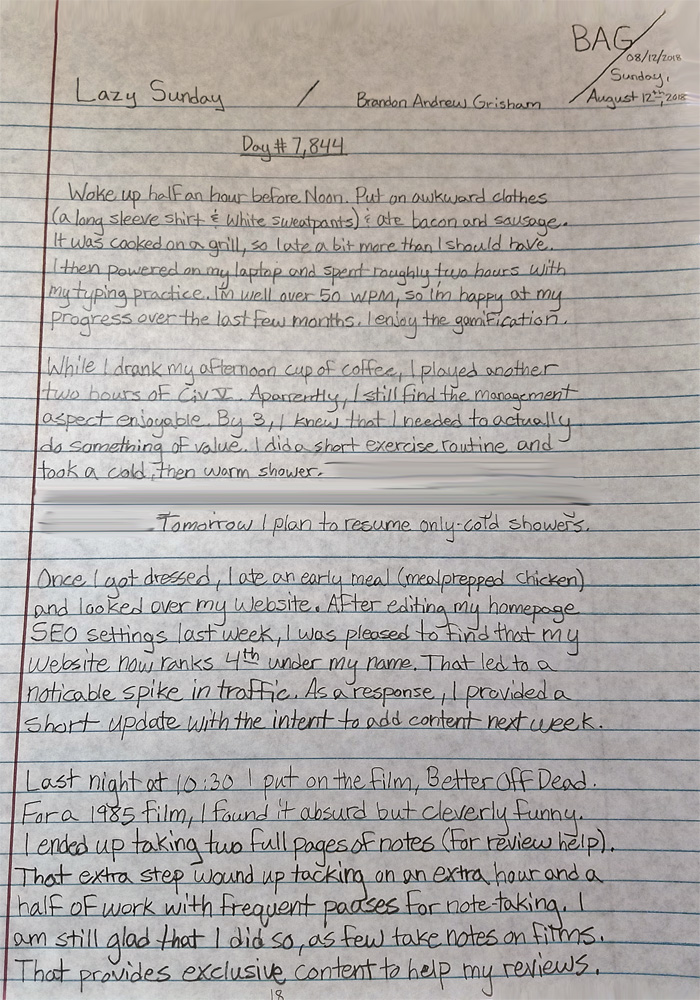 BAG
08/12/2018
Sunday,
August 12th, 2018
Lazy Sunday / Brandon Andrew Grisham
Day # 7,844
Woke up half an hour before Noon. Put on awkward clothes
(a long sleeve shirt & white sweatpants) & ate bacon and sausage.
It was cooked on a grill, so I ate a bit more than I should have.
I then powered on my laptop and spent roughly two hours with
my typing practice. I'm well over 50 WPM, so I'm happy at my
progress over the last few months. I enjoy the gamification.
While I drank my afternoon cup of coffee, I played another
two hours of Civ V. Aparrently, I still find the management
aspect enjoyable. By 3, I knew that I needed to actually
do something of value. I did a short exercise routine and
took a cold, then warm shower.
Tomorrow I plan to resume only-cold showers.
Once I got dressed, I ate an early meal (mealprepped chicken)
and looked over my website. After editing my homepage
SEO settings last week, I was pleased to find that my
website now ranks 4th under my name. That led to a
noticable spike in traffic. As a response, I provided a
short update with the intent to add content next week.
Last night at 10:30 I put on the film, Better Off Dead.
For a 1985 film, I found it absurd but cleverly funny.
I ended up taking two full pages of notes (for review help).
That extra step wound up tacking on an extra hour and a
half of work with frequent pauses for note-taking. I
am still glad that I did so, as few take notes on films.
That provides exclusive content to help my reviews.
18